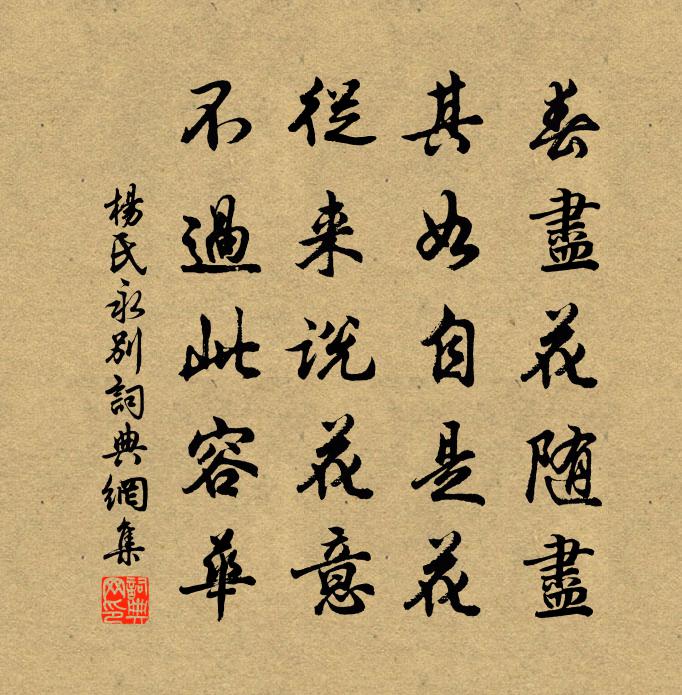 春盡花随盡
其如自是花
從来説花意
不過此容華
楊氏永别詞典網集
詞典网印